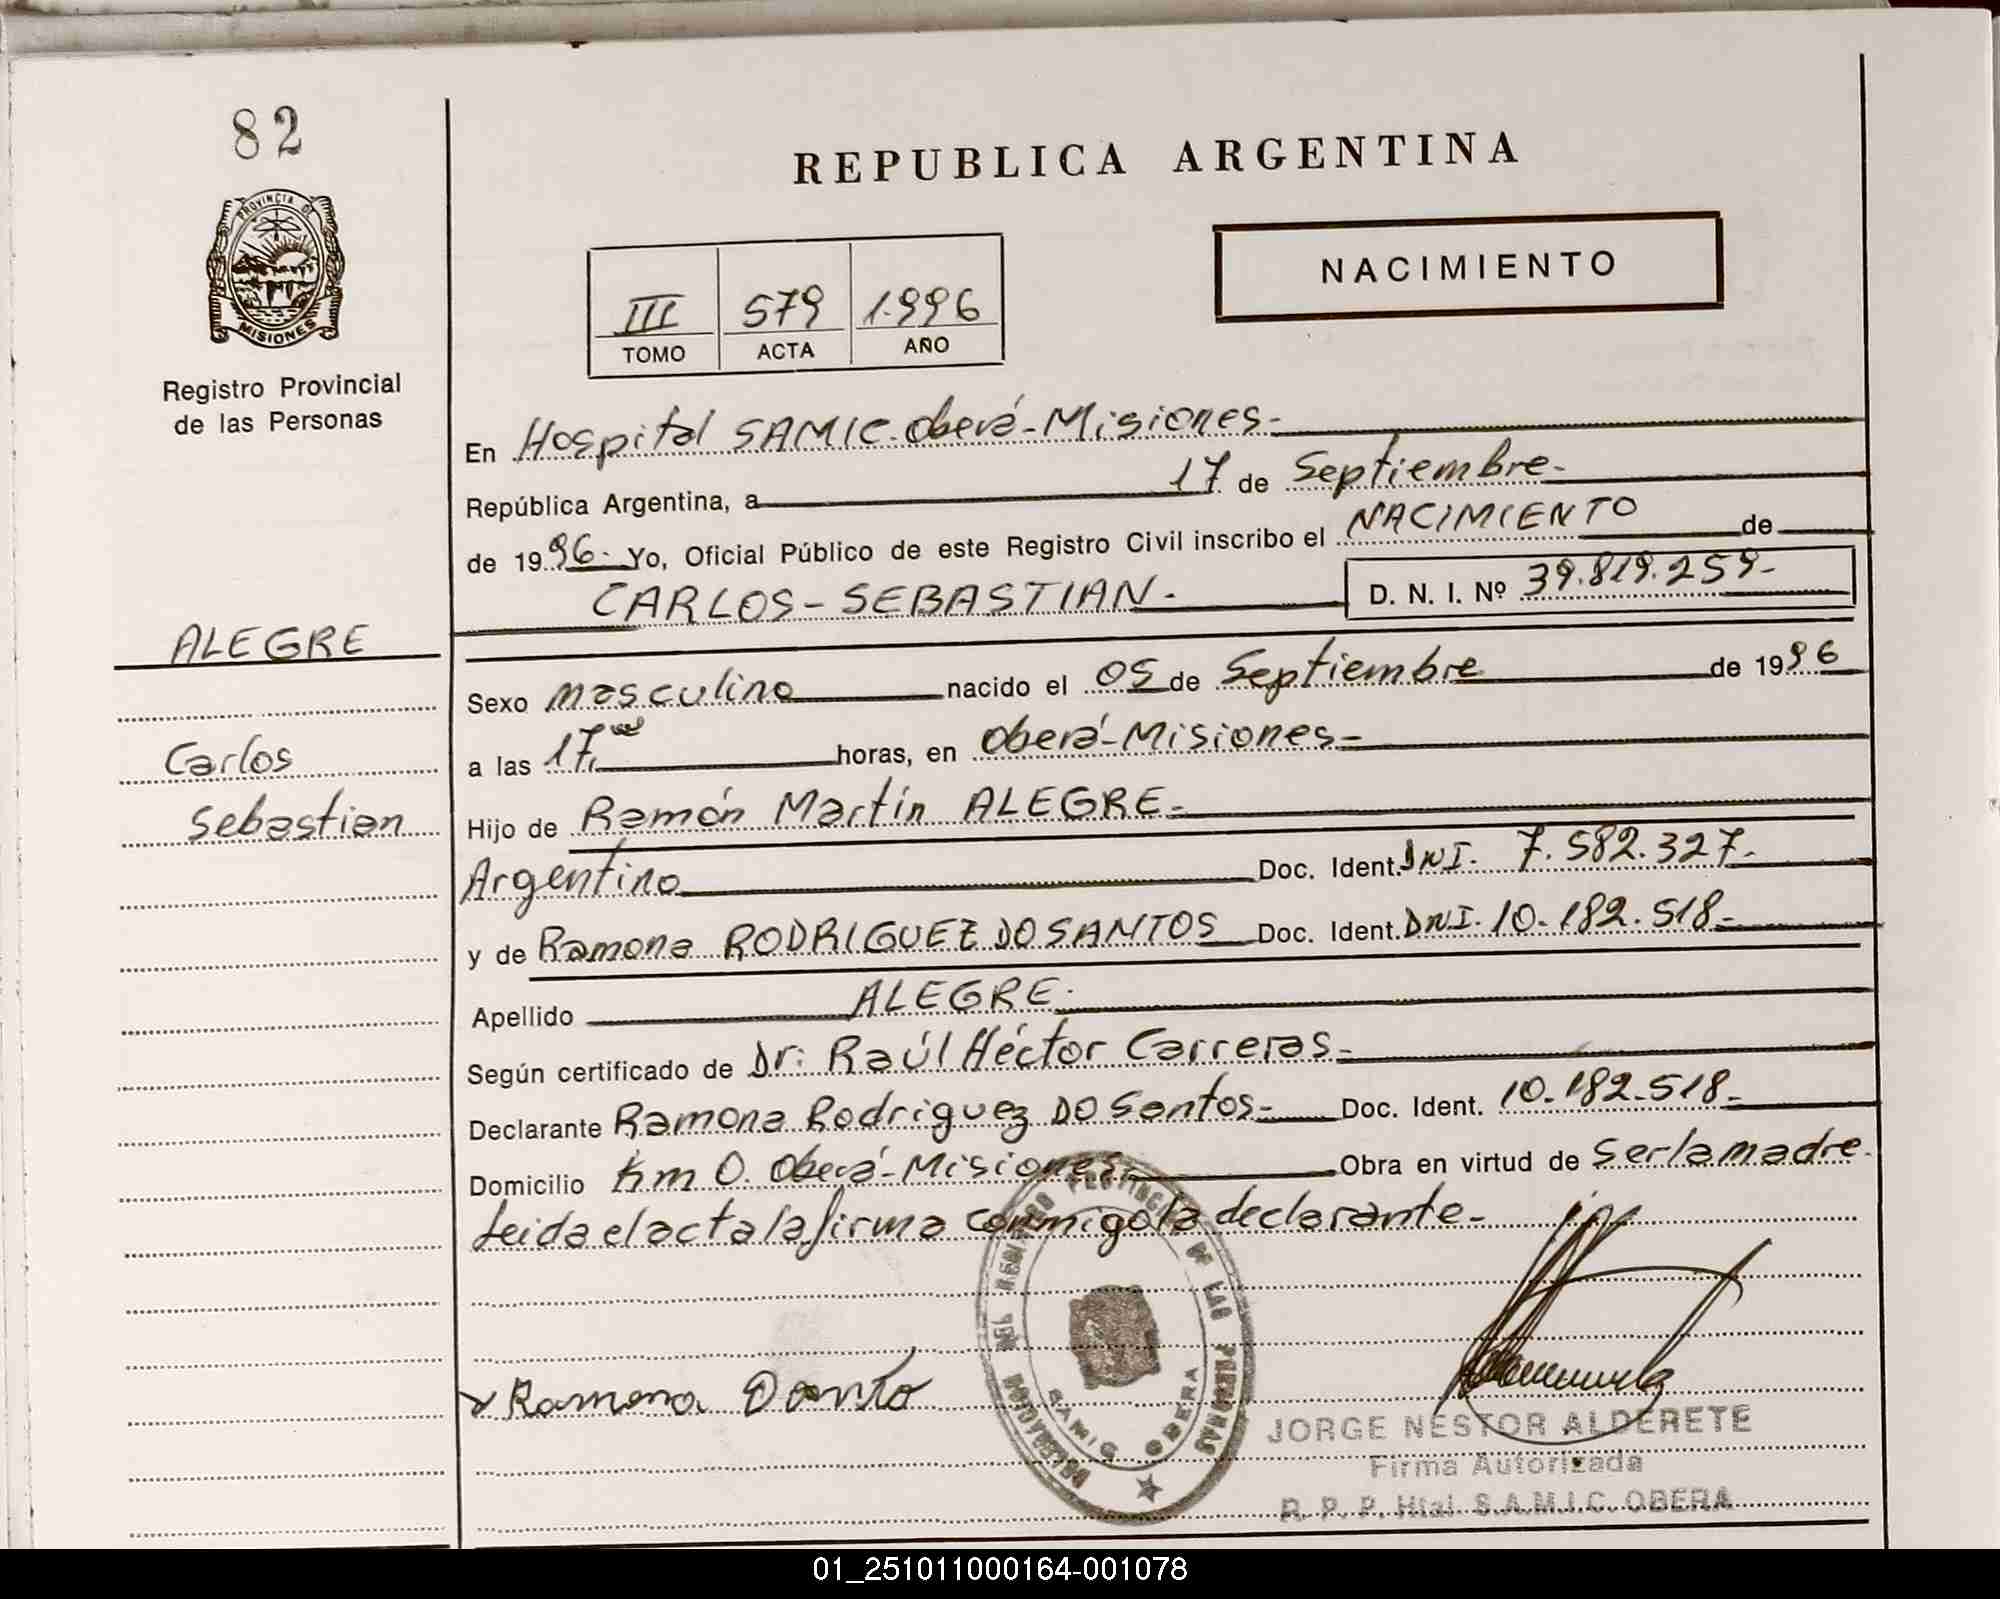 82
PROVINCIA DE
MISIONES
Registro Provincial
de las Personas
REPUBLICA ARGENTINA
NACIMIENTO
III 579 1.996
TOMO ACTA AÑO
En Hospital SAMIC. Oberá-Misiones-
República Argentina, a 17 de Septiembre-
de 1996- Yo, Oficial Público de este Registro Civil inscribo el NACIMIENTO de
CARLOS-SEBASTIAN- D. N. I. Nº 39.819.259-
ALEGRE
Carlos
Sebastian
Sexo masculino nacido el 05 de Septiembre de 1996
a las 17, horas, en Oberá-Misiones-
Hijo de Ramón Martín ALEGRE-
Argentino Doc. Ident. DNI. 7.582.327-
y de Ramona RODRIGUEZ DO SANTOS Doc. Ident. DNI. 10.182.518-
Apellido ALEGRE-
Según certificado de Dr: Raúl Héctor Carreras-
Declarante Ramona Rodriguez DO Santos- Doc. Ident. 10.182.518-
Domicilio Km 0. Oberá-Misiones- Obra en virtud de ser la madre-
Leida el acta la firma conmigo la declarante-
x Ramona Dosanto
DELEGACION DEL REGISTRO PROVINCIAL DE LAS PERSONAS
SAMIC OBERA
JORGE NESTOR ALDERETE
Firma Autorizada
R. P. P. Htal. S.A.M.I.C. OBERA
01_251011000164-001078